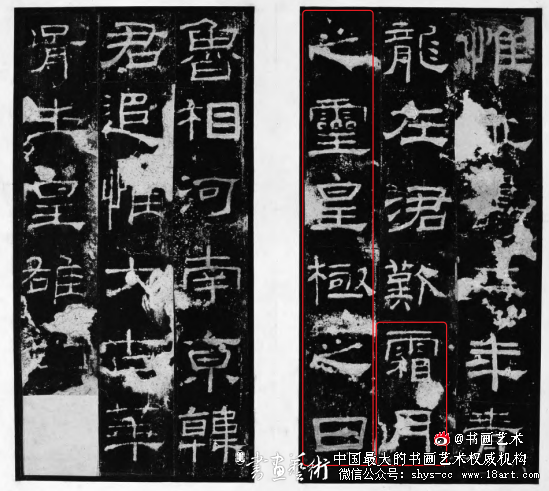 惟永壽二年青
龍在涒歎霜月
之靈皇極之日
魯相河南京韓
君追惟太古華
胥生皇雄
書畫藝術
@书画艺术
中国最大的书画艺术权威机构
微信公众号: shys-cc www.18art.com